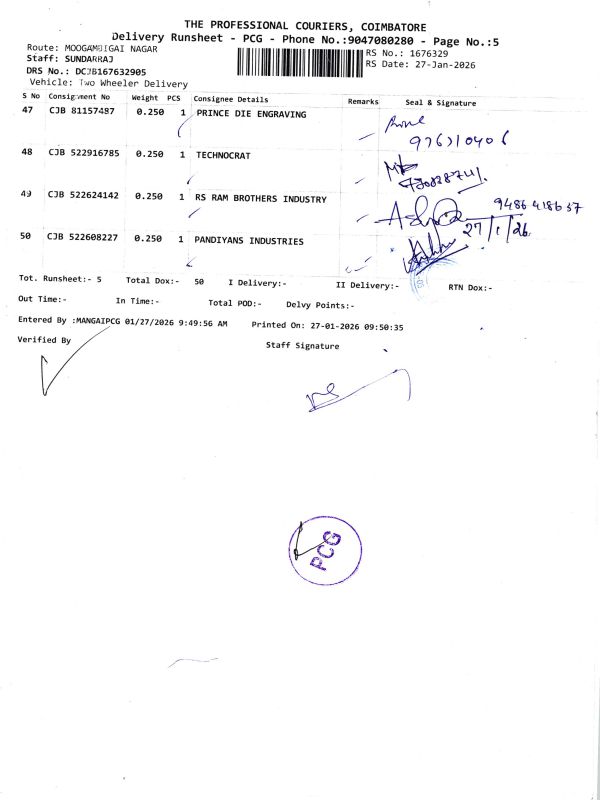 THE PROFESSIONAL COURIERS, COIMBATORE
Delivery Runsheet - PCG - Phone No.:9047080280 - Page No.:5
Route: MOOGAMBIGAI NAGAR
RS No.: 1676329
Staff: SUNDARRAJ
RS Date: 27-Jan-2026
DRS No.: DCJB167632905
Vehicle: Two Wheeler Delivery
S No Consignment No Weight PCS Consignee Details Remarks Seal & Signature
47 CJB 81157487 0.250 1 PRINCE DIE ENGRAVING
48 CJB 522916785 0.250 1 TECHNOCRAT
49 CJB 522624142 0.250 1 RS RAM BROTHERS INDUSTRY
9486418637
27/1/26
50 CJB 522608227 0.250 1 PANDIYANS INDUSTRIES
Tot. Runsheet:- 5 Total Dox:- 50 I Delivery:- II Delivery:- RTN Dox:-
Out Time:- In Time:- Total POD:- Delvy Points:-
Entered By :MANGAIPCG 01/27/2026 9:49:56 AM Printed On: 27-01-2026 09:50:35
Verified By
Staff Signature
PCG